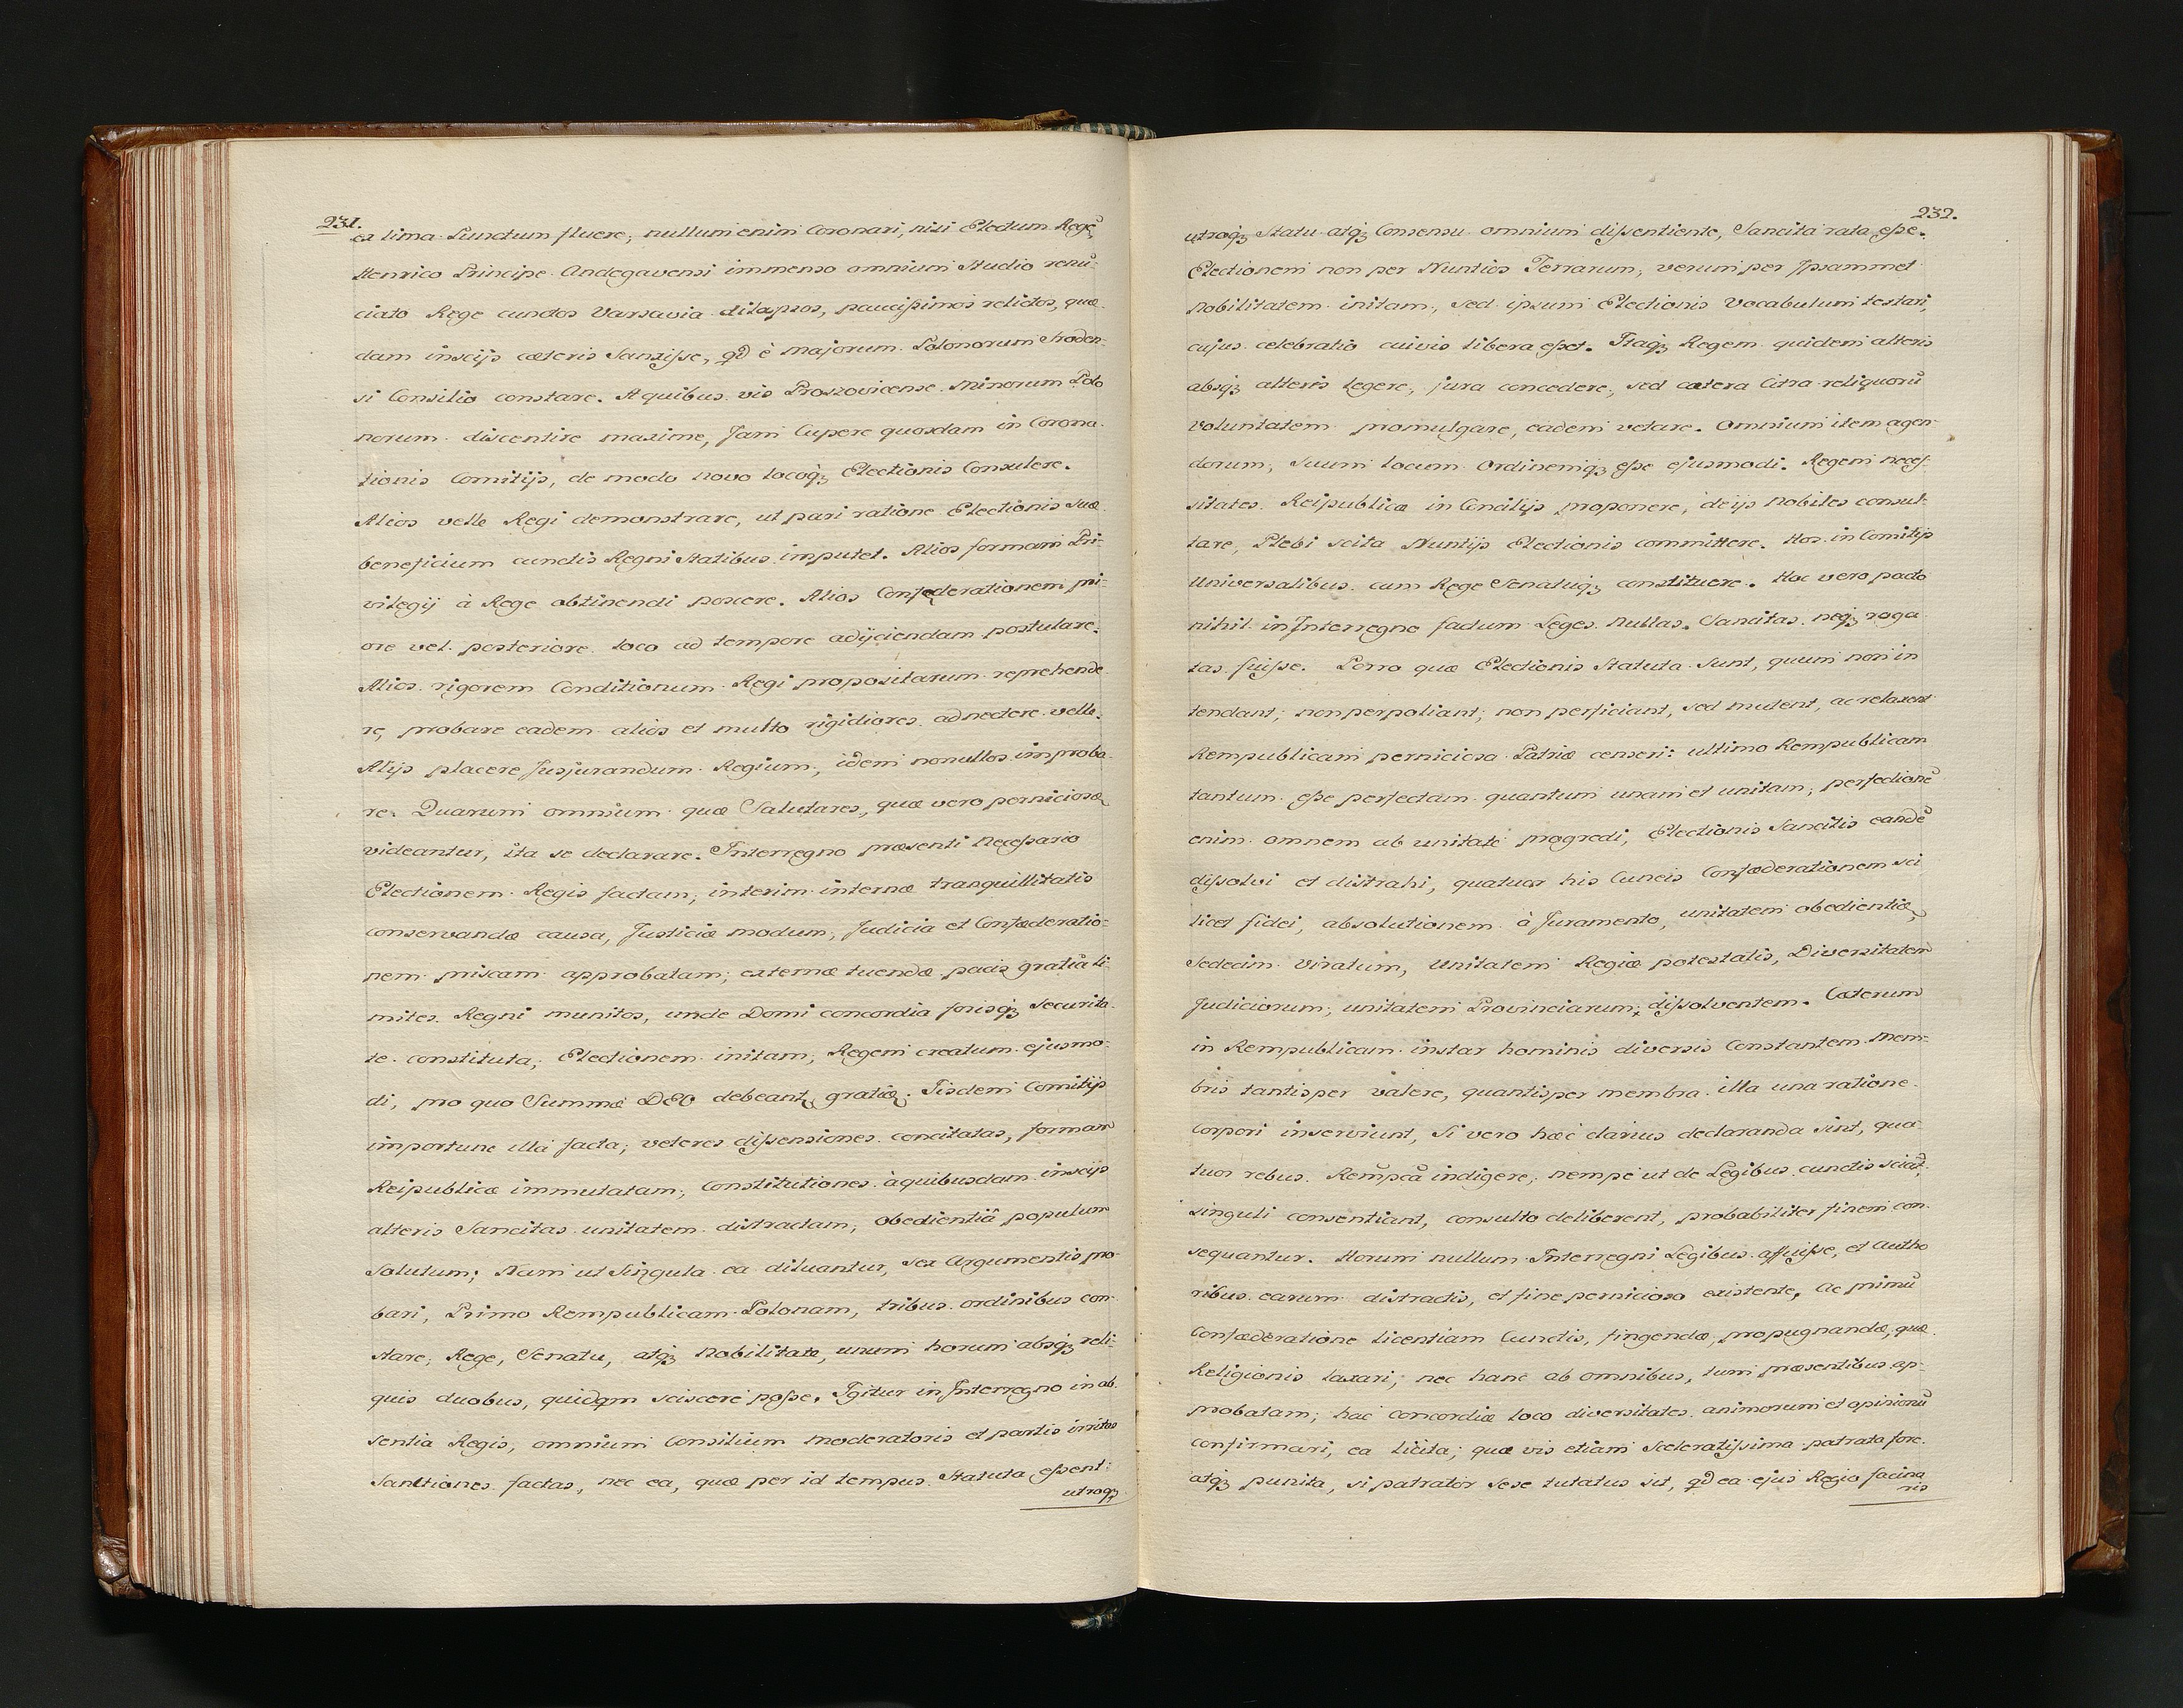 231.
ex lima Punctum fluere, nullum enim Coronari, nisi Electum Regẽ,
Henrico Principe Andegavensi immenso omnium Studio renũ-
ciato Rege cunctos Varsavia dilapsos, paucissimos relictos, quæ-
dam inscijs cæteris Sanxisse, qd è majorum Polonorum Sroden-
si Consilio constare. A quibus vis Proszovicense Minorum Polo
norum discentire maxime, Jam Cupere quosdam in Corona-
tionis Comitijs, de modo novo locoq; Electionis Consulere.
Alios velle Regi demonstrare, ut pari ratione Electionis suæ
beneficium cunctis Regni Statibus imputet. Alios formam Pri-
vilegij à Rege obtinendi poscere. Alios Confæderationem pri-
ore vel posteriore loco ad tempore adijciendam postulare.
Alios rigorem Conditionum Regi propositarum reprehende
re, probare eadem alios et multo rigidiores adnectere velle.
Alijs placere Jusjurandum Regium, idem nonullos improba-
re. Quarum omnium quæ Salutares, quæ vero perniciosæ
videantur, ita se declarare. Interregno præsenti necessario
Electionem Regis factam, interim internæ tranquillitatis
conservandæ causa, Justiciæ modum, Judicia et Confæderatio-
nem priscam approbatam; externæ tuendæ pacis gratiâ li-
mites Regni munitos, unde Domi concordia forisq; securita-
te constituta, Electionem initam, Regem creatum ejusmo-
di, pro quo Summæ DEO debeant gratiæ. Iisdem Comitijs
importune illa facta; veteres dissensiones concitatas, formam
Reipublicæ immutatam, Constitutiones à quibusdam inscijs
alteris Sancitas unitatem distractam, obedientiâ populum
Solutum; Nam ut Singula ea diluantur, sex Argumentis pro-
bari, Primo Rempublicam Polonam, tribus ordinibus con-
stare, Rege, Senatu, atq; Nobilitate, unum horum absq; reli-
quis duobus, quidqm sciscere posse. Igitur in Interregno in ab-
sentia Regis, omnium Consilium moderatoris et partis irritas
Sanctiones factas, nec ea, quæ per id tempus Statuta essent:
utroq;
232.
utroq; Statu atq; Consensu omnium dissentiente, Sancita rata esse.
Electionem non per Nuntios Terrarum, verum per Ipsammet
Nobilitatem initam, sed ipsum Electionis Vocabulum testari,
cujus celebratio cuivis libera esset. Itaq; Regem quidem alteris
absq; alteris legere, jura concedere, sed cætera Citra reliquorũ
Voluntatem promulgare, eadem vetare. Omnium item agen-
dorum, suum locum Ordinemq; esse ejusmodi. Regem neces-
sitates Reipublicæ in Concilijs proponere, de ijs Nobiles consul-
tare, Plebi scita Nuntijs Electionis committere. Hos in Comitijs
Universalibus cum Rege Senatuq; constituere. Hoc vero pacto
nihil in Interregno factum Leges nullas Sancitas neq; roga
tas fuisse. Porro quæ Electionis Statuta Sunt, quum non in
tendant; non perpoliant; non perficiant, sed mutent, ac relaxent
Rempublicam perniciosa Patriæ censeri: ultimo Rempublicam
tantum esse perfectam quantum unam et unitam, perfectionẽ
enim omnem ab unitate progredi, Electionis Sancitis eandẽ
dissolvi et distrahi, quatuor his Cuneis Confæderationem sci
licet fidei, absolutionem à Juramento, unitatem obedientiæ,
Sedecim Viratum, Unitatem Regiæ potestatis, Diversitatem
Judiciorum, unitatem Provinciarum, dissolventem. Cæterum
in Rempublicam instar hominis diversis Constantem Mem-
bris tantisper valere, quantisper membra illa una ratione
Corpori inserviunt, Si vero hæc clarius declaranda sint, qua-
tuor rebus Rempcã indigere, nempe ut de Legibus cunctis sciãt,
singuli consentiant, consulto deliberent, probabiliter finem con-
sequantur. Horum nullum Interregni Legibus affuisse, et Autho
ribus earum distractis, et fine pernicioso existente, Ac primũ
Confæderatione licentiam Cunctis, fingendæ, propugnandæ, quæ
Religionis laxari, nec hanc ab omnibus, tum præsentibus ap-
probatam; hac concordiæ loco diversitates animorum et opinionũ
confirmari, ea licita, quæ vis etiam Sceleratissima patrata fore.
atq; punita, si patrator sese tutatus sit, qd ea ejus Regio facina
ris